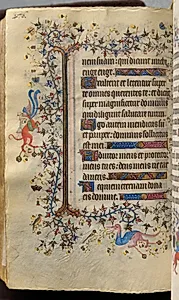 nem suam: qui dicunt michi
euge euge.
Exultent et letentur super
te omnes querentes te: et dicant
semper magnificetur dominus
qui diligunt salutare tuum.
Ego autem mendicus sum
et pauper: dominus sollicitus
est mei.
Adiutor meus et protector
meus tu es: deus meus ne tar
daveris.
Requiem eternam dona
eis domine.